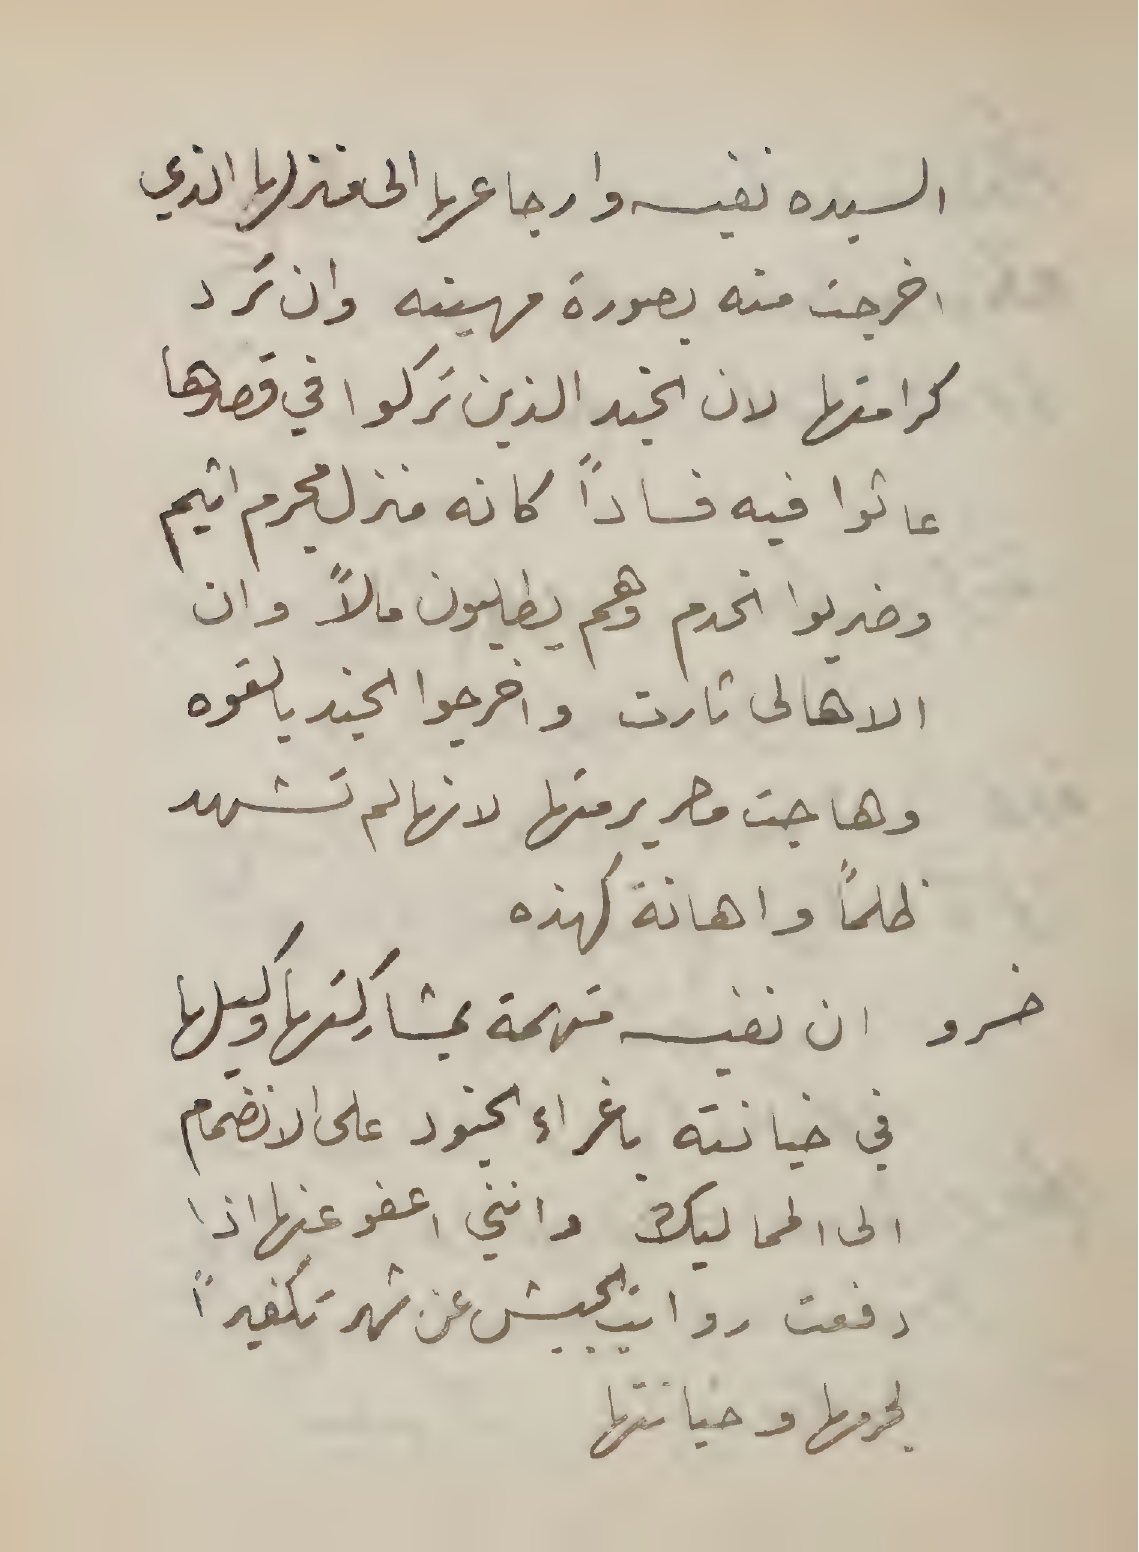 السيده نفيسه وارجاعها الى منزلها الذي
اخرجت منه بصورة مهينه وان ترد
كرامتها لان الجند الذين تركوا في قصرها
عاثوا فيه فساداً كانه منزل مجرم اثيم
وضربوا الخدم وهم يطلبون مالاً وان
الاهالى ثارت واخرجوا الجند بالقوه
وهاجت مصر برمتها لانها لم تشهد
ظلماً واهانة كهذه
خسرو ان نفيسه متهمة بمشاركتها وكيلها
في خيانته باغراء الجنود على الانضمام
الى المماليك وانني اعفو عنها اذا
دفعت رواتب الجيش عن شهر تكفيراً
لجرمها وخيانتها